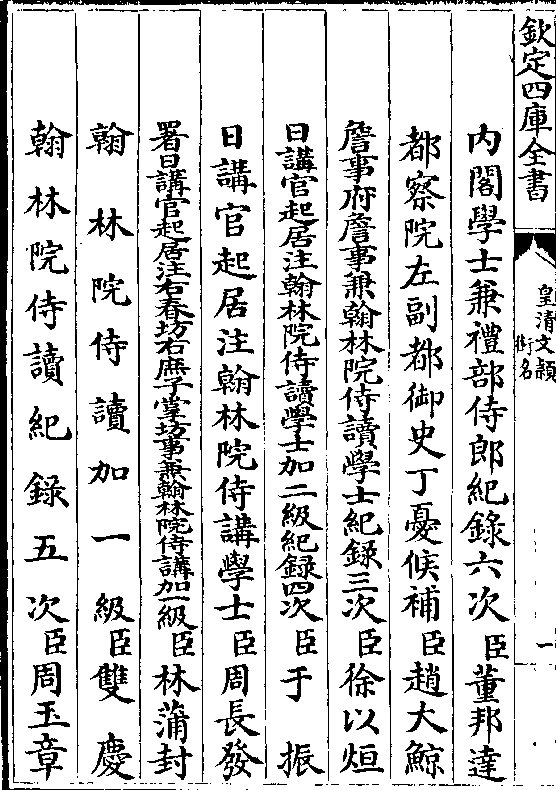 欽定四庫全書
皇清文穎
銜名
一
內閣學士兼禮部侍郎紀錄六次臣董邦達
都察院左副都御史丁憂候補臣趙大鯨
詹事府詹事兼翰林院侍讀學士紀錄三次臣徐以烜
日講官起居注翰林院侍讀學士加二級紀錄四次臣于振
日講官起居注翰林院侍講學士臣周長發
署日講官起居注右春坊右庶子掌坊事兼翰林院侍講加一級臣林蒲封
翰林院侍讀加一級臣雙慶
翰林院侍讀紀錄五次臣周玉章